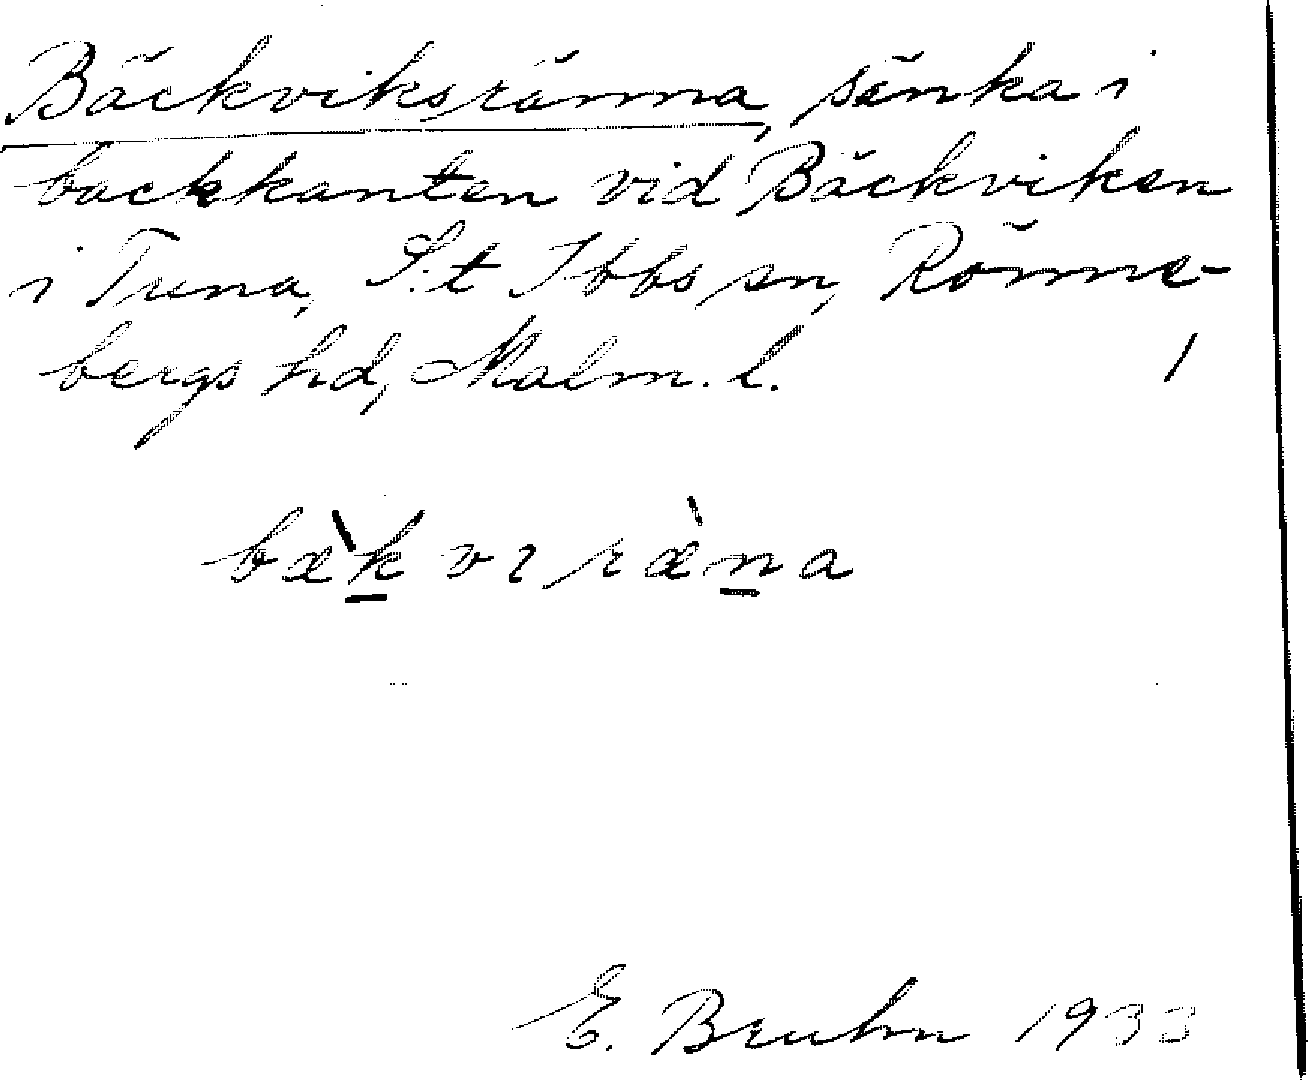 Bäckviksränna, sänka i
backkanten vid Bäckviken
i Tuna, S:t Ibbs sn, Rönne-
bergs hd, Malm. l.
bæ̀kvɩræ̀na
E. Bruhn 1933